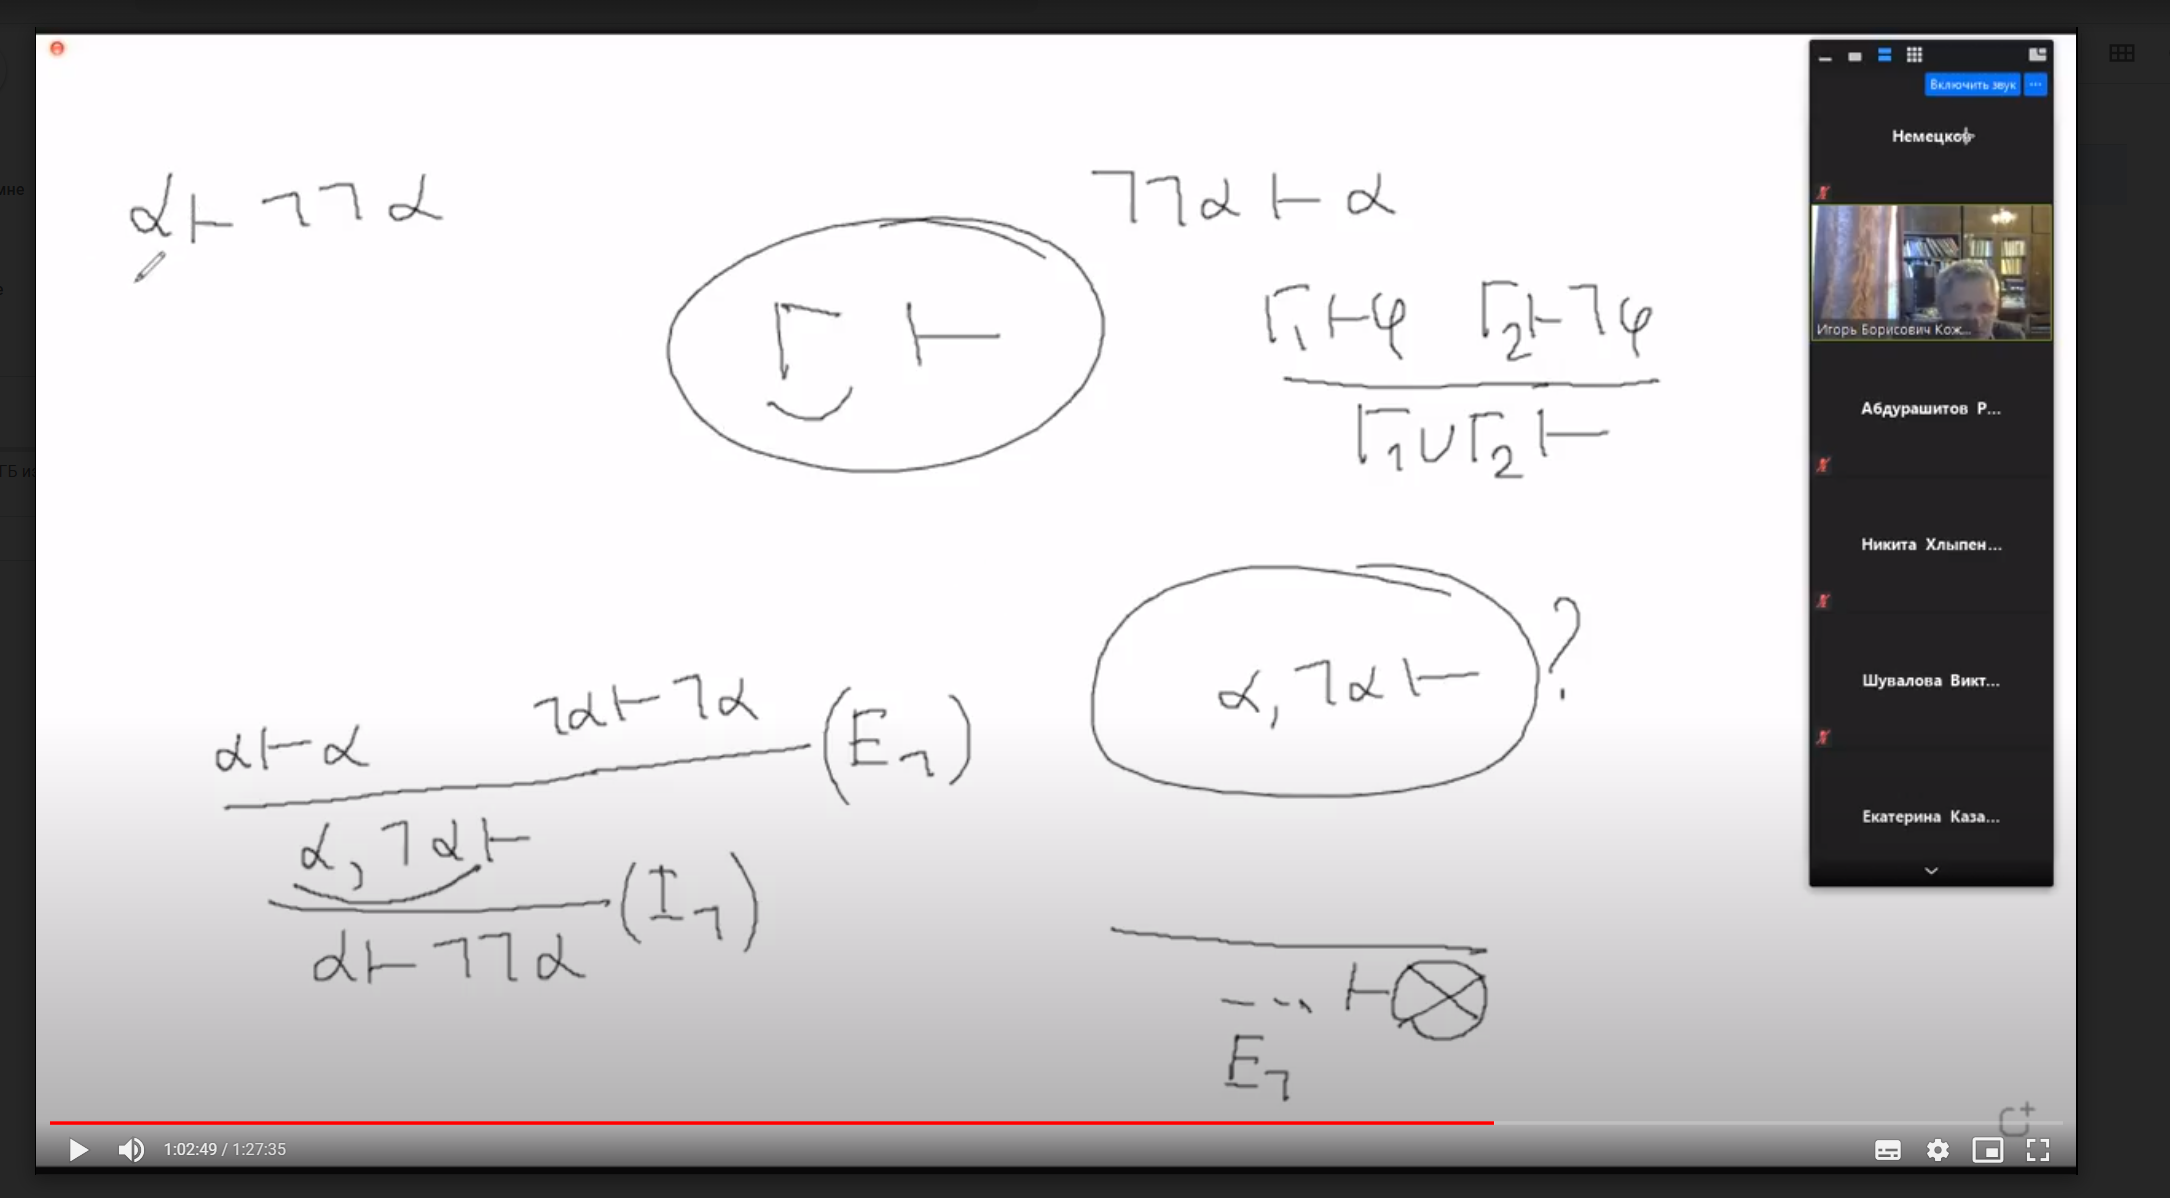 α ⊢ ¬¬α
¬¬α ⊢ α
Γ ⊢
Γ₁ ⊢ φ Γ₂ ⊢ ¬φ
Γ₁ ∪ Γ₂ ⊢
α ⊢ α ¬α ⊢ ¬α (E¬)
α, ¬α ⊢
(I¬)
α ⊢ ¬¬α
α, ¬α ⊢ ?
... ⊢
E¬
Включить звук
Игорь Борисович Кож...
Абдурашитов Р...
Никита Хлыпен...
Шувалова Викт...
Екатерина Каза...
1:02:49 / 1:27:35
мне
е
ГБ из